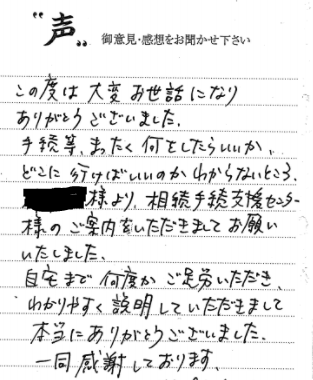 “声„ 御意見・感想をお聞かせ下さい
この度は大変お世話になり
ありがとうございました.
手続等、まったく何をしたらいいか、
どこに行けばいいのかわからないところ、
様より 相続手続支援センター
様のご案内をいただきましてお願い
いたしました.
自宅まで何度かご足労いただき、
わかりやすく説明していただきまして
本当にありがとうございました.
一同感謝しております.